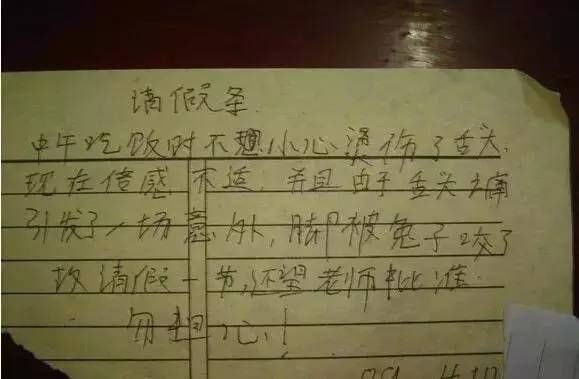 请假条
中午吃饭时不小心烫伤了舌头,
现在倍感不适,并且由于舌头之痛
引发了一场意外,脚被兔子咬了
故请假一节,还望老师批准.
勿担心!